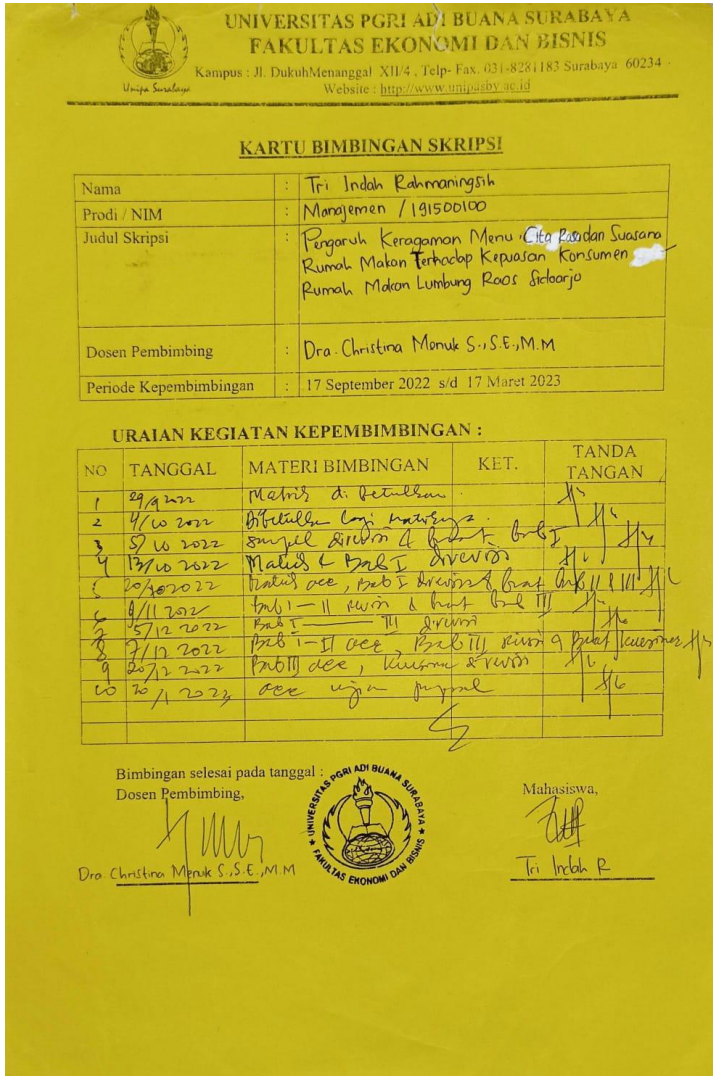 UNIVERSITAS PGRI ADI BUANA SURABAYA
FAKULTAS EKONOMI DAN BISNIS
Kampus : Jl. DukuhMenanggal XII/4 , Telp- Fax. 031-8281183 Surabaya 60234
Website : http://www.unipasby.ac.id
Unipa Surabaya
KARTU BIMBINGAN SKRIPSI
Nama : Tri Indah Rahmaningsih
Prodi / NIM : Manajemen / 191500100
Judul Skripsi : Pengaruh Keragaman Menu, Cita Rasa dan Suasana
Rumah Makan Terhadap Kepuasan Konsumen
Rumah Makan Lumbung Raos Sidoarjo
Dosen Pembimbing : Dra. Christina Menuk S., S.E., M.M
Periode Kepembimbingan : 17 September 2022 s/d 17 Maret 2023
URAIAN KEGIATAN KEPEMBIMBINGAN :
NO TANGGAL MATERI BIMBINGAN KET. TANDA TANGAN
1 29/9 2022 Matrik di betulkan
2 4/10 2022 Dibetulkan lagi matriknya.
3 5/10 2022 direvisi & buat bab I
4 13/10 2022 Matrik & Bab I direvisi
5 20/10 2022 Matrik acc, Bab I direvisi & buat bab II & III
6 9/11 2022 bab I - II revisi & buat bab III
7 5/12 2022 Bab I - III direvisi
8 7/12 2022 Bab I - II acc, Bab III revisi & Buat kuesioner
9 20/12 2022 Bab III acc, kuesioner direvisi
10 20/1 2023 acc ujian proposal
Bimbingan selesai pada tanggal :
Dosen Pembimbing,
Mahasiswa,
UNIVERSITAS PGRI ADI BUANA SURABAYA
FAKULTAS EKONOMI DAN BISNIS
Dra Christina Menuk S., S.E., M.M
Tri Indah R